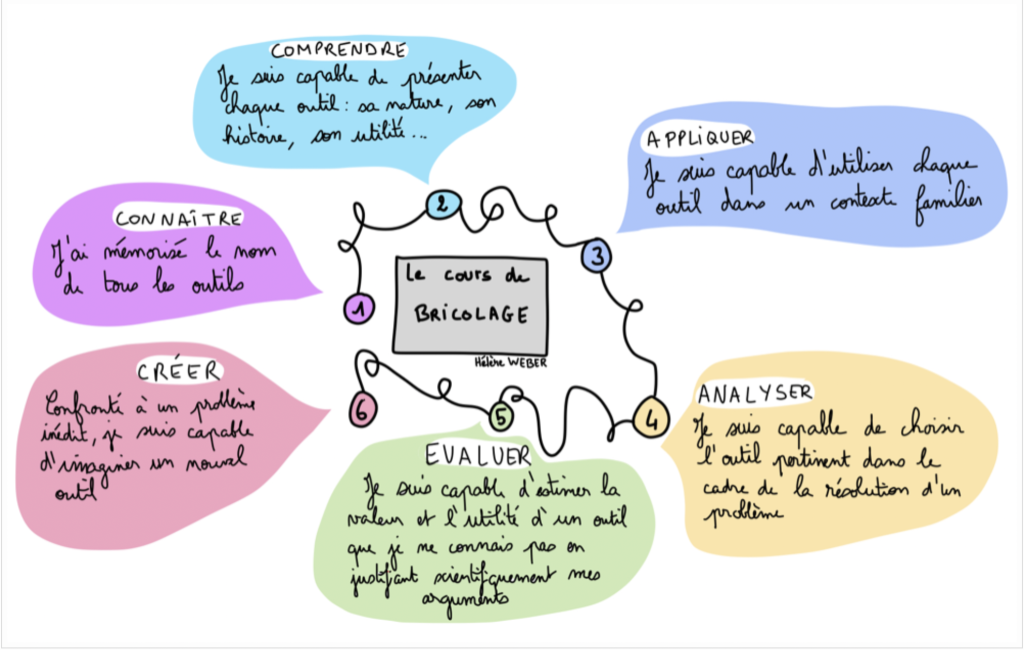 Le cours de
BRICOLAGE
Hélène WEBER
1
CONNAÎTRE
J'ai mémorisé le nom
de tous les outils
2
COMPRENDRE
Je suis capable de présenter
chaque outil : sa nature, son
histoire, son utilité...
3
APPLIQUER
Je suis capable d'utiliser chaque
outil dans un contexte familier
4
ANALYSER
Je suis capable de choisir
l'outil pertinent dans le
cadre de la résolution d'un
problème
5
EVALUER
Je suis capable d'estimer la
valeur et l'utilité d'un outil
que je ne connais pas en
justifiant scientifiquement mes
arguments
6
CRÉER
Confronté à un problème
inédit, je suis capable
d'imaginer un nouvel
outil